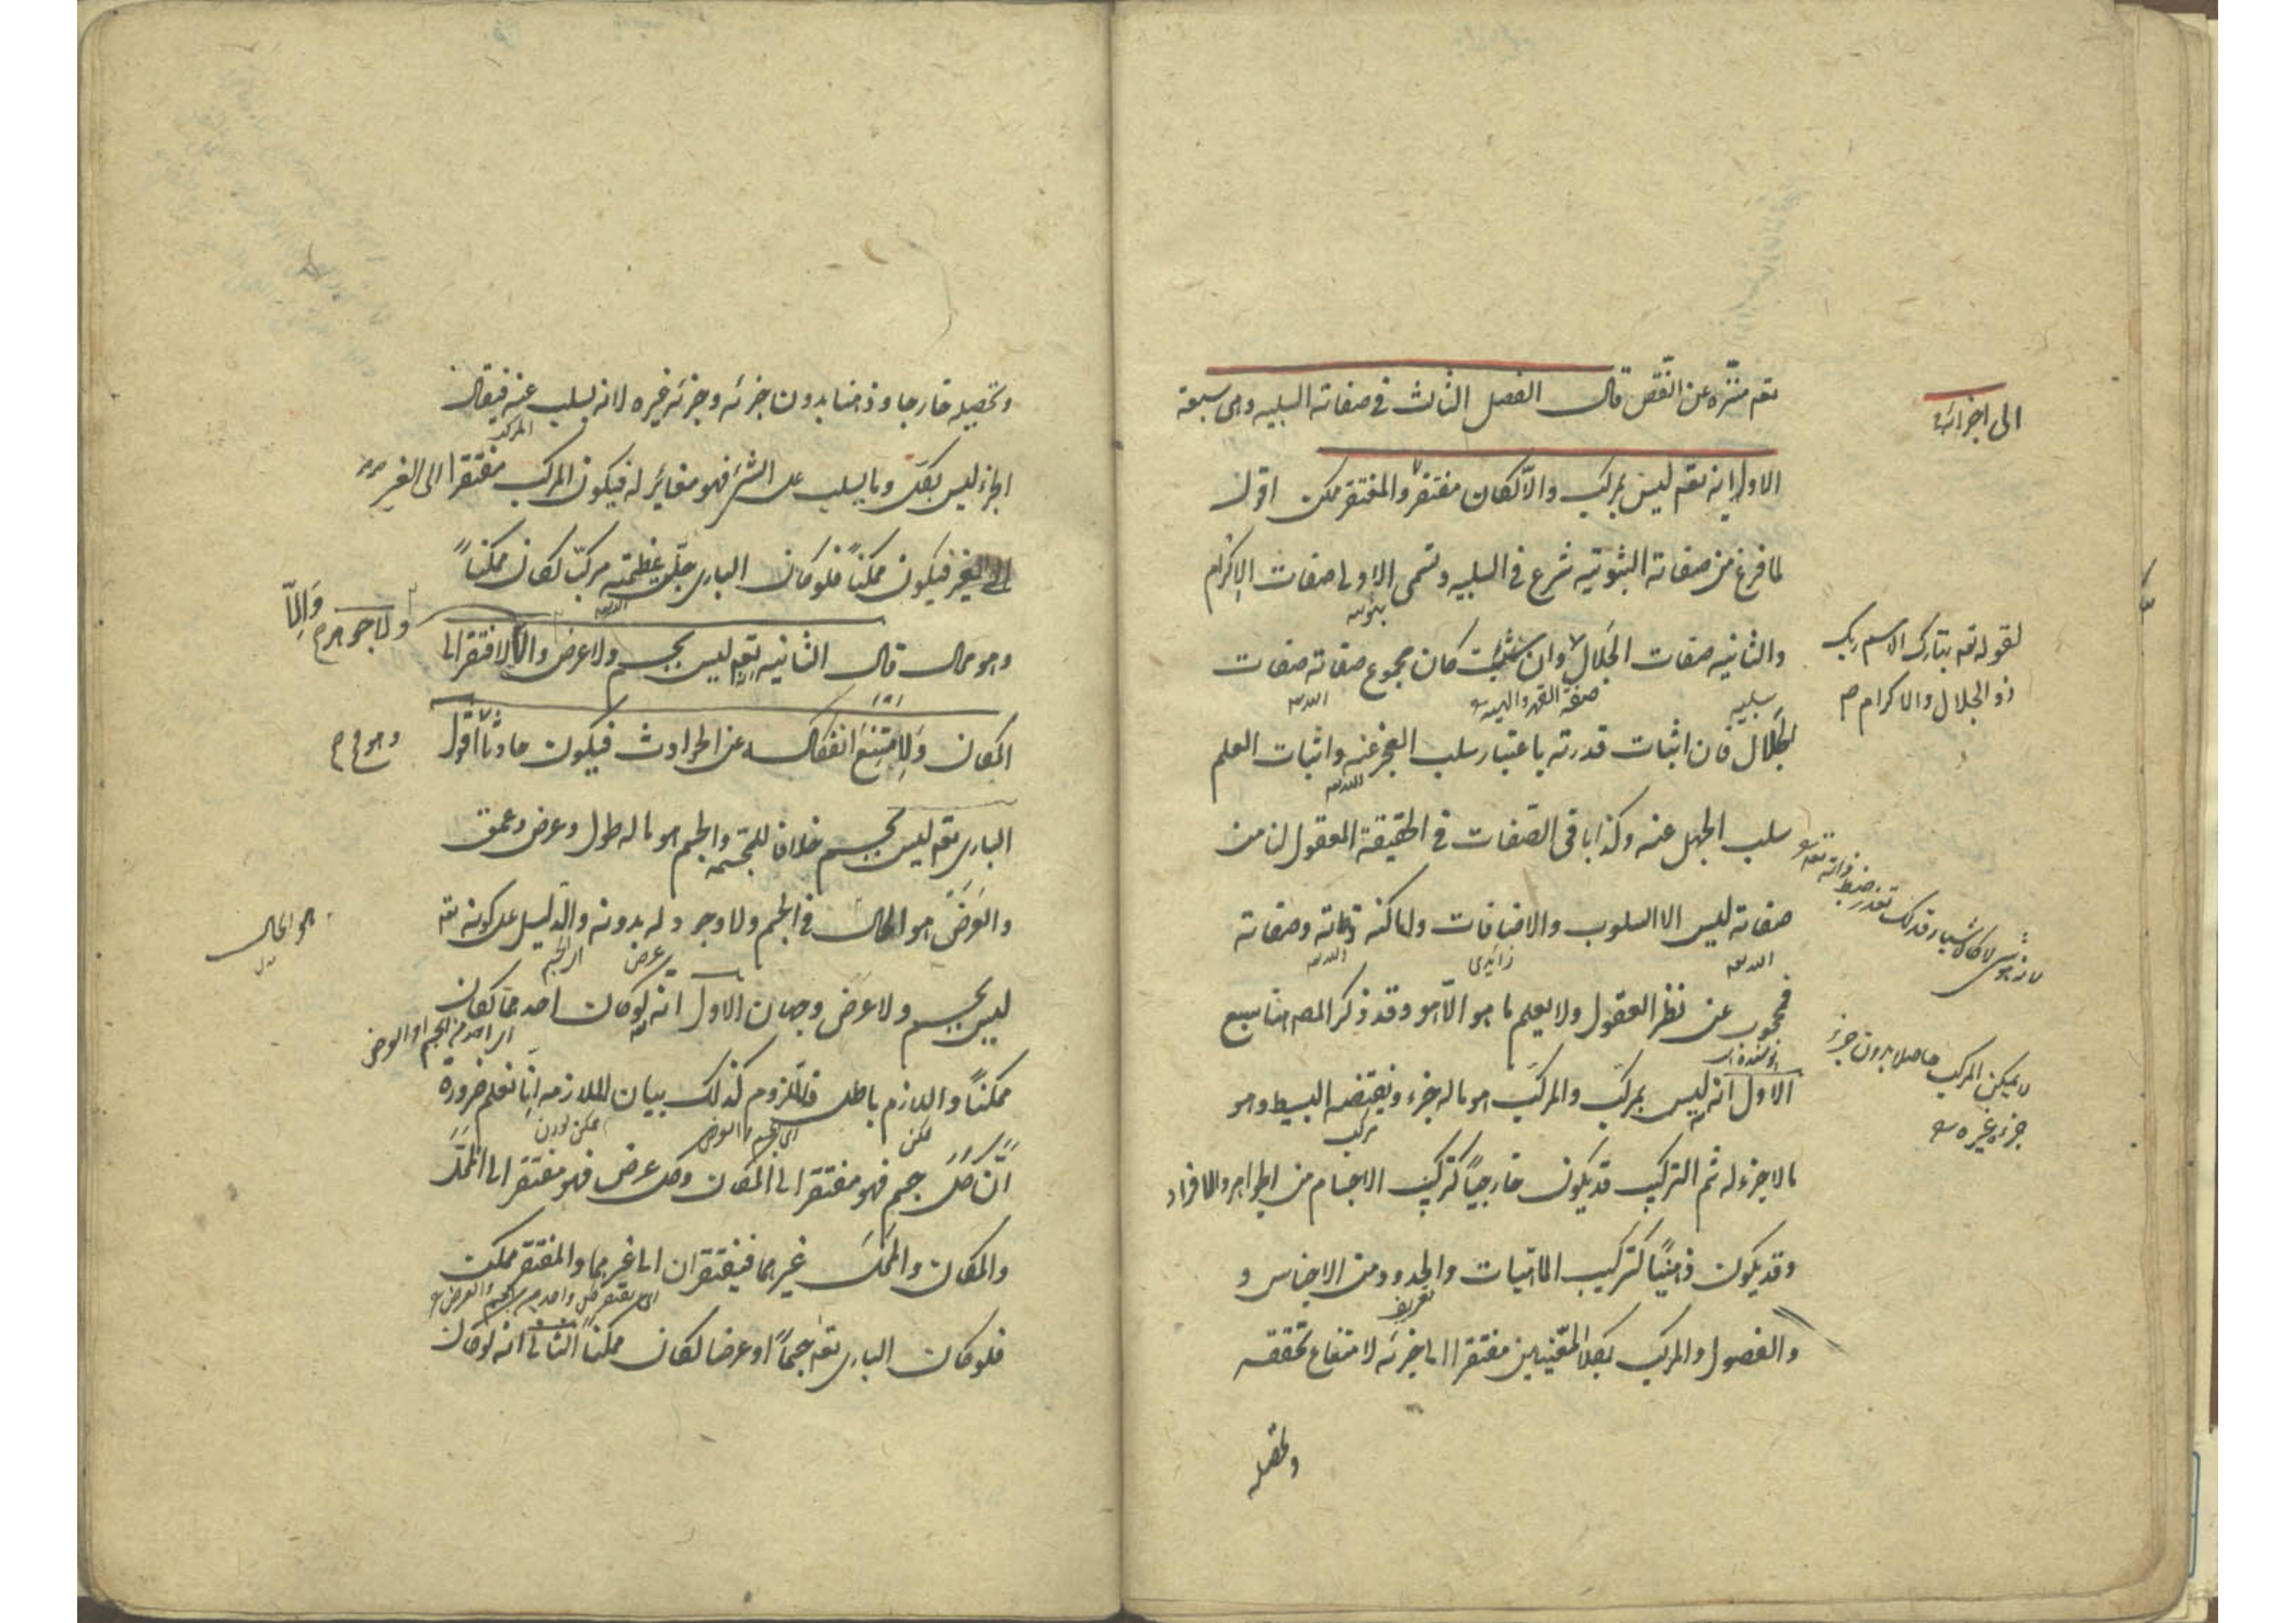 تعه منزه عن النقص قال الفصل الثالث في صفاته السلبيه وهى سبعة
الى اجزائه
الاول انه تعه ليس بمركب والا لكان مفتقرا والمفتقر ممكن اقول
لما فرغ من صفاته الثبوتيه شرع في السلبيه وتسمى الاولى صفات الاكرام
ثبوتيه
والثانيه صفات الجلال وان شئت كان مجموع صفاته صفات
لقوله تعه تبارك اسم ربك
ذو الجلال والاكرام
صفة القهر
سلبيه
الجلال فان اثبات قدرته باعتبار سلب العجز عنه واثبات العلم
سلب الجهل عنه وكذا باقى الصفات في الحقيقة المعقول لنا من
صفاته ليس الا السلوب والاضافات واما كنه ذاته وصفاته
زايدى
فمحجوب عن نظر العقول ولا يعلم ما هو الا هو وقد ذكر المص هنا سبع
الاول انه ليس بمركب والمركب هو ما له جزء ونقيضه البسيط وهو
لا يمكن المركب حاصلا بدون جزء
جزءه غيره
مركب
ما لا جزء له ثم التركيب قد يكون خارجيا كتركيب الاجسام من الجواهر الافراد
وقد يكون ذهنيا كتركيب الماهيات والحدود من الاجناس و
تعريف
والفصول والمركب بكلا المعنيين مفتقرا الى جزئه لامتناع تحققه
وتحصله
وتحصيله خارجا وذهنا بدون جزئه وجزئه غيره لانه يسلب عنه فيقال
المركب
الجزء ليس بكل وما يسلب عن الشئ فهو مغاير له فيكون المركب مفتقرا الى الغير
الى الغير فيكون ممكنا فلو كان البارى جلت عظمته مركبا لكان ممكنا
وهو محال قال الثانيه انه تعه ليس بجسم ولا عرض والا لافتقر الى
ولا جوهر والا
المكان ولامتنع انفكاكه عن الحوادث فيكون حادثا اقول
وهو مح
البارى تعه ليس بجسم خلافا للمجسمه والجسم هو ما له طول وعرض وعمق
والعرض هو الحال في الجسم ولا وجود له بدونه والدليل على كونه تعه
هو الحال
عرض
اى الجسم
ليس بجسم ولا عرض وجهان الاول انه لو كان احدهما لكان
اى احد من الجسم او العرض
ممكنا واللازم باطل فالملزوم كذلك بيان الملازمه انا نعلم ضرورة
ممكن
ان كل جسم فهو مفتقر الى المكان وكل عرض فهو مفتقر الى المحل
والمكان والمحل غيرهما فيفتقران الى غيرهما والمفتقر ممكن
اى يفتقر كل واحد من الجسم والعرض
فلو كان البارى تعه جسما او عرضا لكان ممكنا الثانى انه لو كان